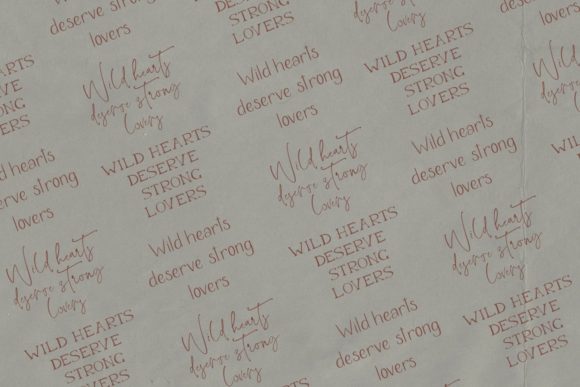 deserve strong
lovers
DESERVE
STRONG
LOVERS
deserve strong
Lovers
Wild hearts
deserve strong
Lovers
Wild hearts
deserve strong
lovers
WILD HEARTS
DESERVE
STRONG
LOVERS
Wild hearts
deserve strong
lovers
WILD HEARTS
DESERVE
STRONG
LOVERS
Wild hearts
deserve strong
Lovers
Wild hearts
deserve strong
lovers
Wild hearts
deserve strong
Lovers
Wild hearts
deserve strong
lovers
WILD HEARTS
DESERVE
STRONG
LOVERS
Wild hearts
deserve strong
Lovers
WILD HEARTS
DESERVE
STRONG
LOVERS
Wild hearts
deserve strong
Lovers
Wild hearts
deserve strong
lovers
WILD HEARTS
DESERVE
STRONG
LOVERS